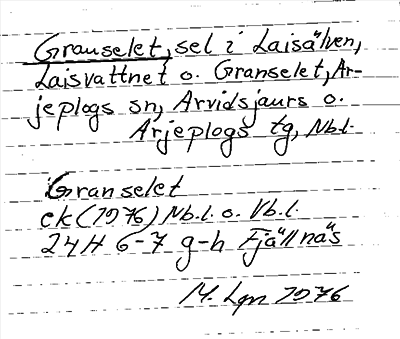 Granselet, sel i Laisälven,
Laisvattnet o. Granselet, Ar-
jeplogs sn, Arvidsjaurs o.
Arjeplogs tg, Nb.l.
Granselet
ek (1976) Nb.l. o. Vb.l.
24H 6-7 g-h Fjällnäs
M. Lgn 1976